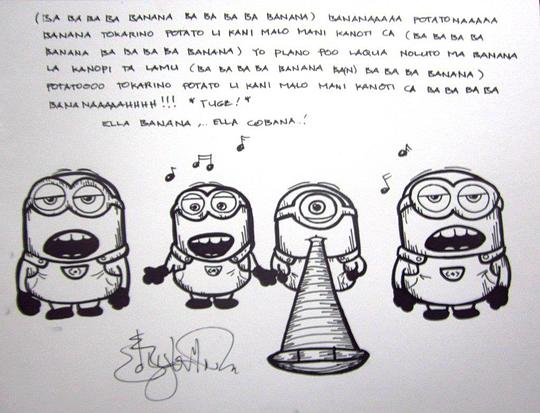 (BA BA BA BA BANANA BA BA BA BA BANANA) BANANAAAAA POTATONAAAAA
BANANA TOKARINO POTATO LI KANI MALO MANI KANOTI CA (BA BA BA BA
BANANA BA BA BA BA BANANA) YO PLANO POO LAQUA NOLUTO MA BANANA
LA KANOPI TA LAMU (BA BA BA BA BANANA BA(N) BA BA BA BANANA)
POTATOOOO TOKARINO POTATO LI KANI MALO MANI KANOTI CA BA BA BA BA
BANANAAAAAHHHH!!! *TUGE!*
ELLA BANANA,.. ELLA COBANA..!